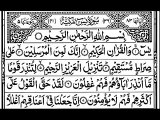 بِسْمِ اللّٰهِ الرَّحْمٰنِ الرَّحِيْمِ
يٰسٓ وَالْقُرْاٰنِ الْحَكِيْمِ اِنَّكَ لَمِنَ الْمُرْسَلِيْنَ عَلٰى
صِرَاطٍ مُّسْتَقِيْمٍ تَنْزِيْلَ الْعَزِيْزِ الرَّحِيْمِ لِتُنْذِرَ قَوْمًا
مَّاۤ اُنْذِرَ اٰبَآؤُهُمْ فَهُمْ غٰفِلُوْنَ لَقَدْ حَقَّ الْقَوْلُ عَلٰۤى
اَكْثَرِهِمْ فَهُمْ لَا يُؤْمِنُوْنَ اِنَّا جَعَلْنَا فِيْۤ اَعْنَاقِهِمْ اَغْلٰلًا